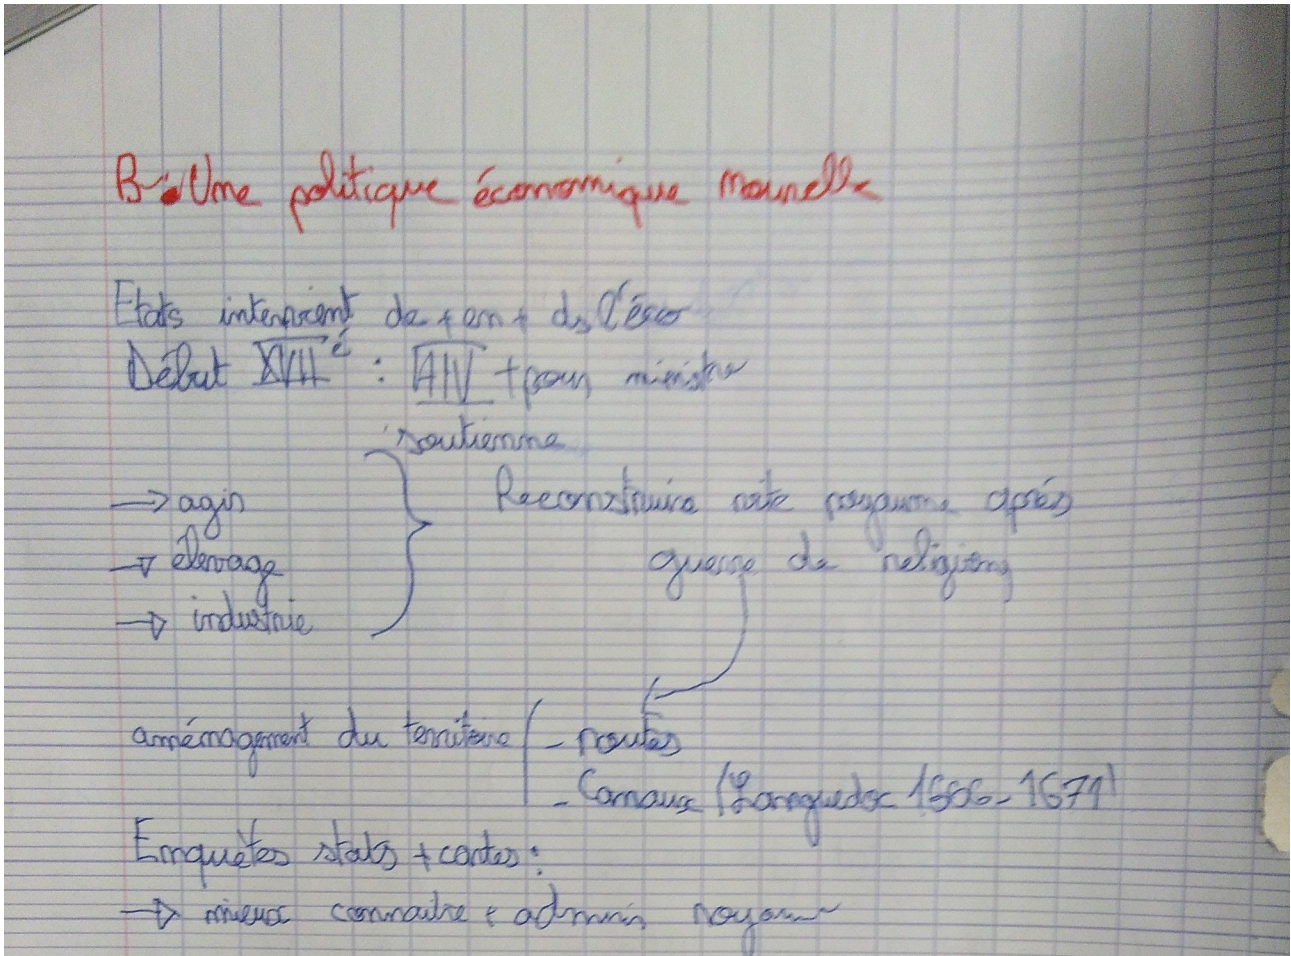 B. Une politique économique nouvelle
Etats intervient de + en + ds l'éco
Début XVII é : HIV + pour ministre
soutienne
→ agir
Reconstruire royaume après
→ élevage
guerre de religions
→ industrie
aménagement du territoire
- routes
- Canaux (Languedoc 1666-1671)
Enquêtes stats + cartes :
→ mieux connaitre + admnis royaume